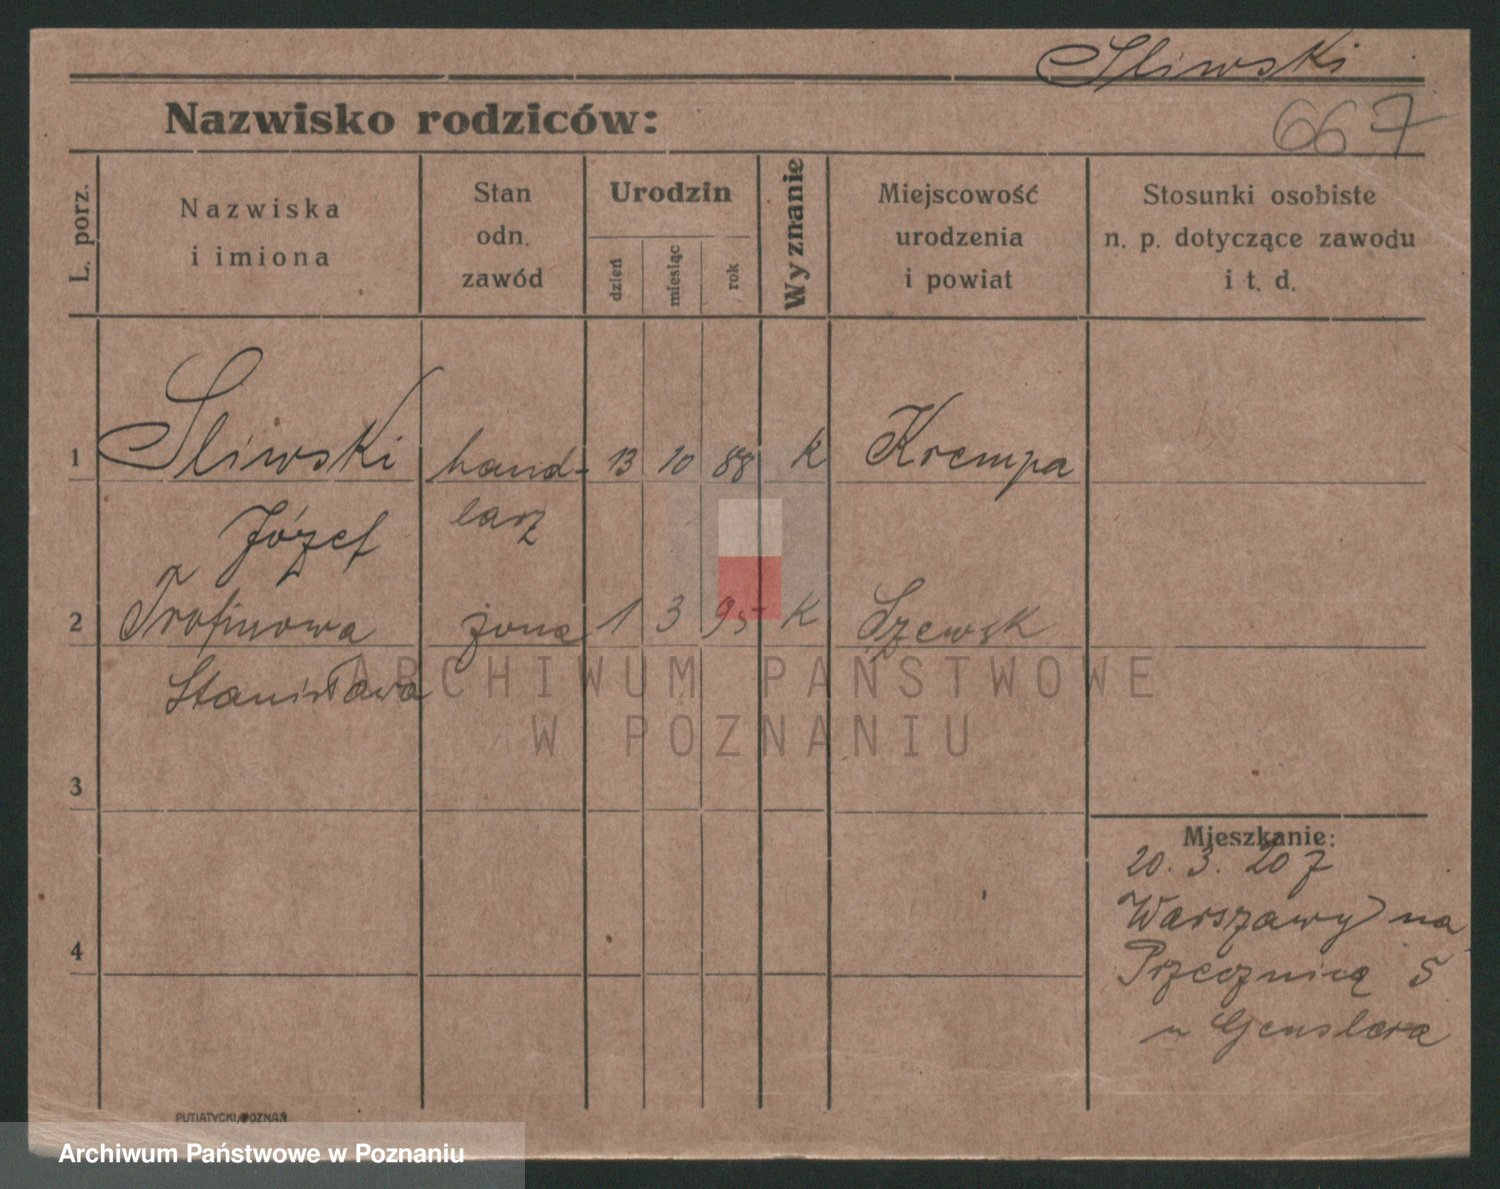 Sliwski
667
Nazwisko rodziców:
L. porz.
Nazwiska
i imiona
Stan
odn.
zawód
Urodzin
dzień
miesiąc
rok
Wyznanie
Miejscowość
urodzenia
i powiat
Stosunki osobiste
n. p. dotyczące zawodu
i t. d.
1 Sliwski hand- 13 10 88 k Krempa
Józef larz
2 żona 1 3 95 k
Stanisława
ARCHIWUM PAŃSTWOWE
W POZNANIU
3
Mieszkanie:
20. 3. 20 z
Warszawy na
4
Przecznicą 5
u Genslera
PUTIATYCKI, POZNAŃ
Archiwum Państwowe w Poznaniu